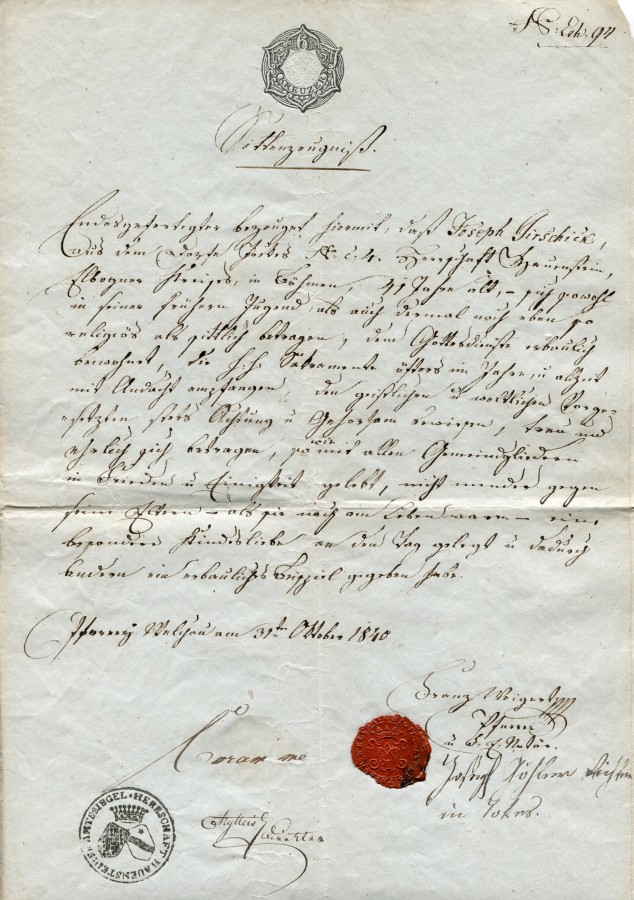 6
KREUZER
Sittenzeugniß.
Endesgefertigter bezeuget hiermit, daß Joseph Pirschick,
aus dem Dorfe Jokes N. c. 4. Herrschaft Hauenstein,
Elbogner Kreises, in Böhmen, 41 Jahre alt, – sich sowohl
in seiner frühern Jugend, als auch dermal noch eben so
religiös als sittlich betragen, dem Gottesdienste erbaulich
beiwohnet, die h. h. Sakramente öfters im Jahre, u allzeit
mit Andacht empfangen den geistlichen u weltlichen Vorge-
setzten stets Achtung u Gehorsam erwiesen, treu und
ehrlich sich betragen, so wie mit allen Gemeindgliedern
in Frieden u Einigkeit gelebt, nicht minder gegen
seine Eltern – als sie noch am Leben waren – eine
besondere Kindesliebe an den Tag gelegt u dadurch
Andern ein erbauliches Beispiel gegeben habe.
Pfarrey Welchau am 31ten Oktober 1840
Franz Weigert
Pfarrer
u. Notär.
Coram me
Joseph Köhler Richter
in Jokes.
AMTSSIEGEL HERRSCHAFT HAUENSTEIN